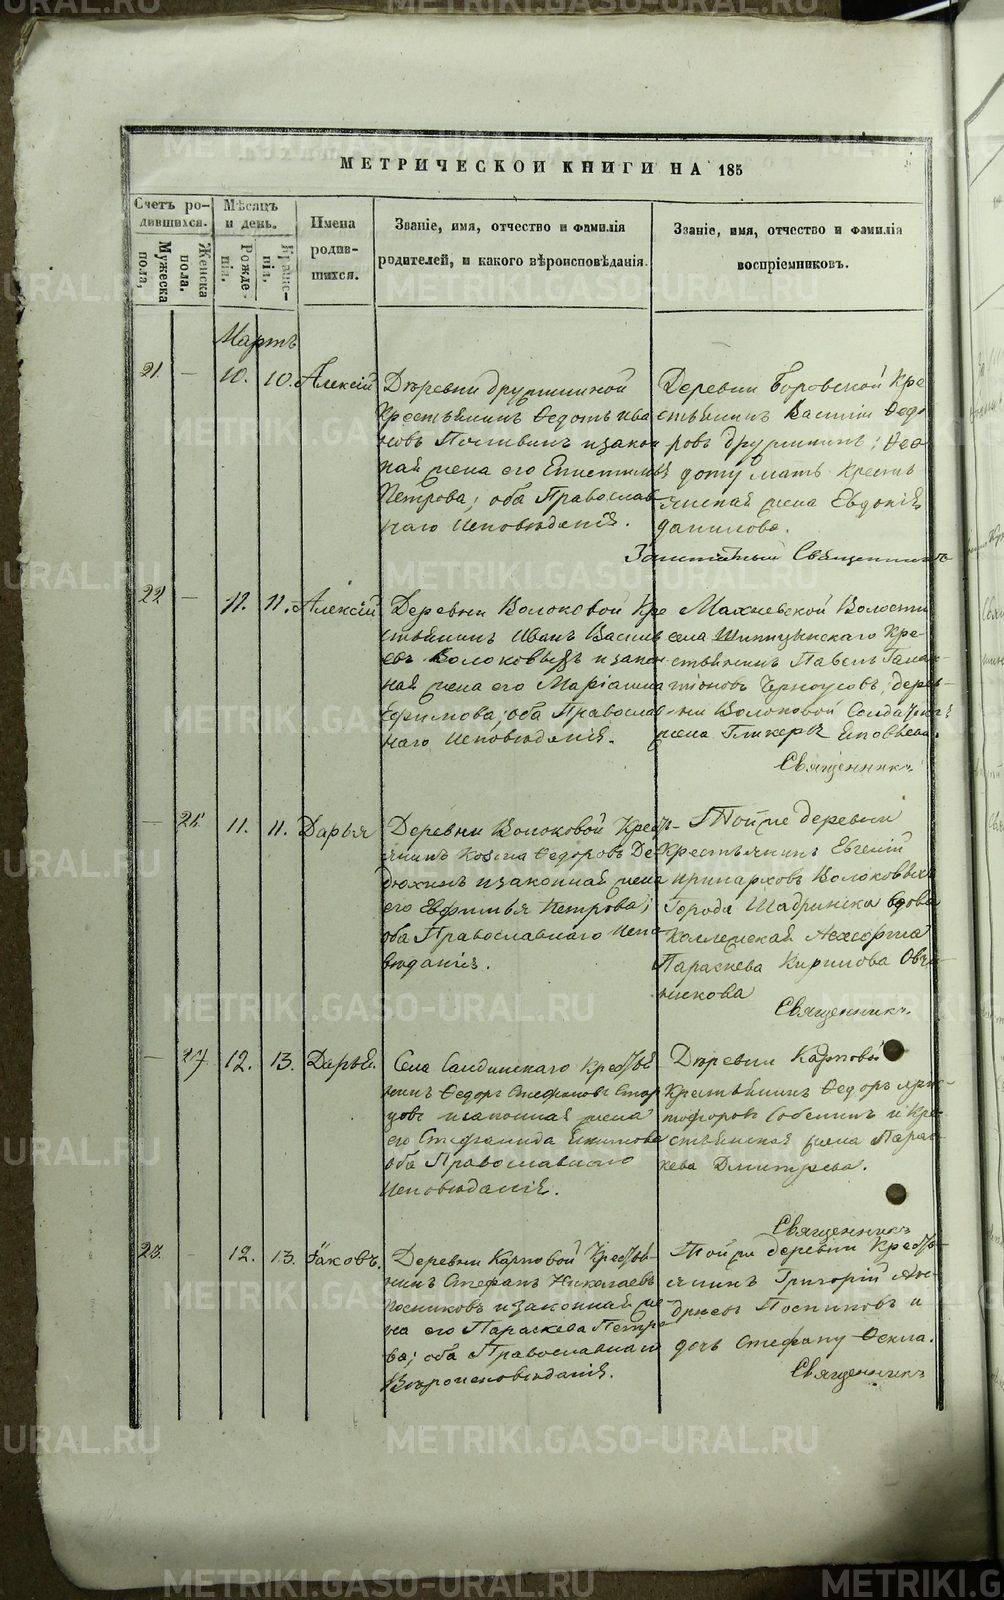 МЕТРИЧЕСКОЙ КНИГИ НА 185
Счетъ ро-
дившихся.
Мужеска
пола,
Женска
пола.
Мѣсяцъ
и день.
Рожде-
нія.
Креще-
нія.
Имена
родив-
шихся.
Званіе, имя, отчество и фамилія
родителей, и какого вѣроисповѣданія.
Званіе, имя, отчество и фамилія
воспріемниковъ.
Мартъ
21. — 10. 10. Алексій
Деревни
Крестьянинъ Ѳедотъ Ива
новъ и закон
ная жена его
Петрова; оба Православ
наго Исповѣданія.
Деревни Боровской Кре
стьянинъ Василій Ѳедо
ровъ
доту мать Кресть
янская жена Евдокія
Данилова.
Священникъ
22 — 11. 11. Алексій
Деревни Волоковой Кре
стьянинъ Иванъ Василь
евъ Волоковыхъ и закон
ная жена его Маріанна
Ефимова; оба Православ
наго Исповѣданія.
Махневской Волости
села Шипицынскаго Кре-
стьянинъ Павелъ Гала-
тіоновъ Черноусовъ, дерев-
ни Волоковой Солдатска
жена
Священникъ
— 11. 11. Дарья
Деревни Волоковой Кресть-
янинъ Козма Ѳедоровъ Де-
дюхинъ и законная жена
его Евфимья Петрова;
оба Православнаго Испо
вѣданія.
Той же деревни
Крестьянинъ Евгеній
Иринарховъ Волоковыхъ
Города Шадринска вдова
Параскева Кирилова Овчи
никова
Священникъ
— 27 12. 13. Дарья.
Села Крестья
нинъ Ѳедоръ Стефановъ Стар
цовъ и законная жена
его Стефанида Екимова
оба Православнаго
Исповѣданія.
Деревни Карповой
Крестьянинъ Ѳедоръ Хрис-
тофоровъ и Кре
стьянская жена Парас
кева Дмитрева.
Священникъ
23. 12. 13. Іаковъ.
Деревни Карповой Крестья-
нинъ Стефанъ Николаевъ
Посниковъ и законная же
на его Параскева Петро
ва; оба Православнаго
Вѣроисповѣданія.
Той же деревни Кресть-
янинъ Григорій Ан-
дреевъ Посниковъ и
дочь Стефану Ѳекла.
Священникъ
METRIKI.GASO-URAL.RU